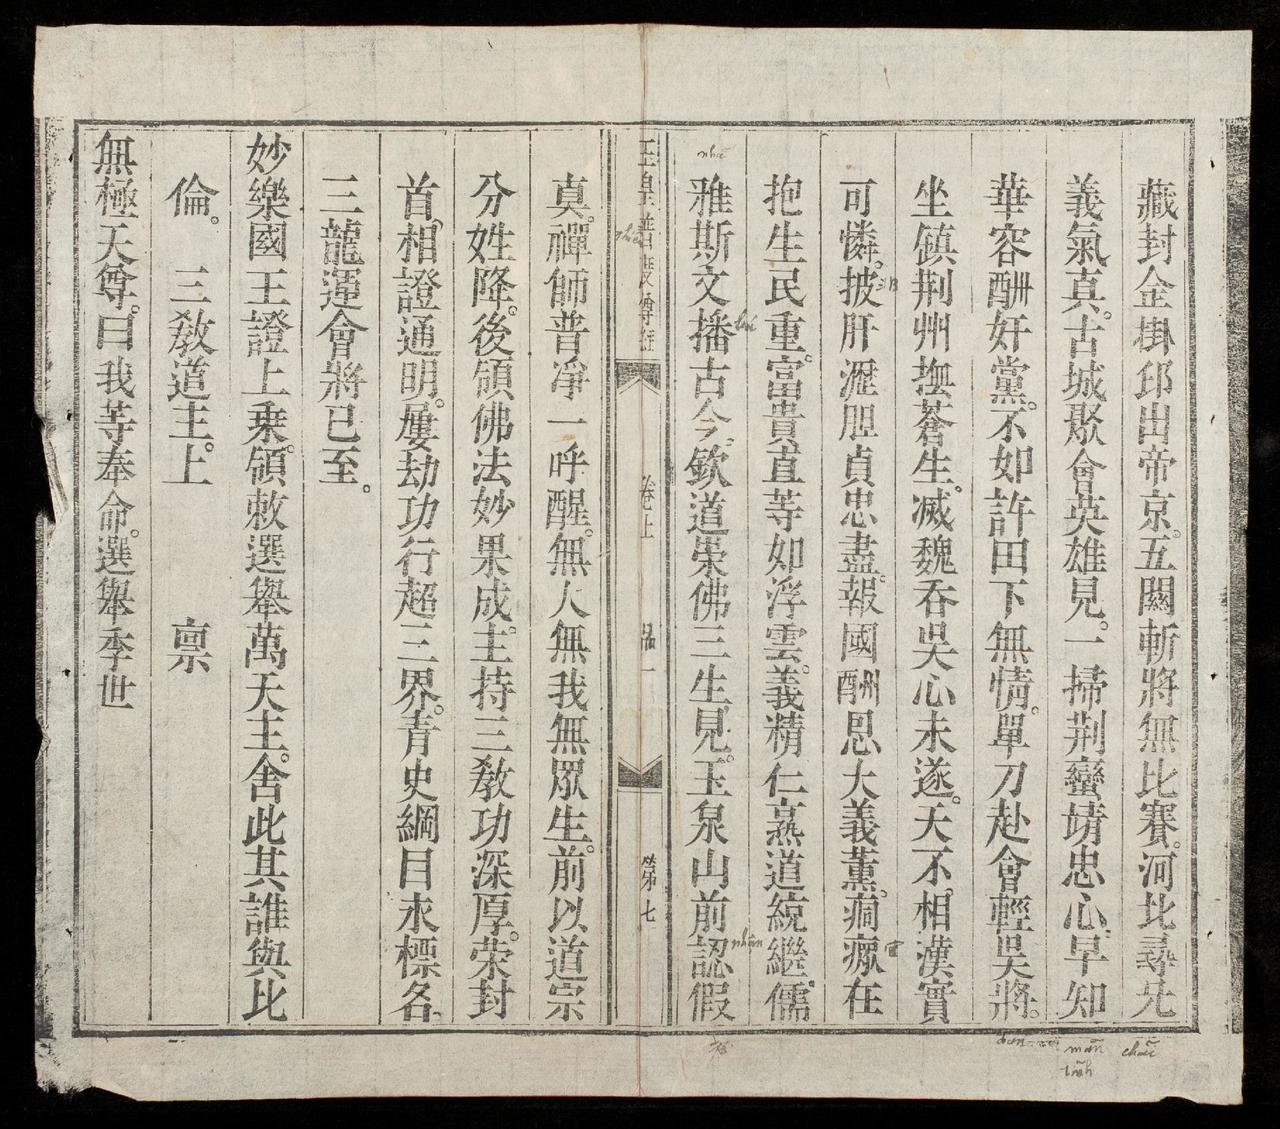 藏封金掛邱出帝京。五關斬將無比賽。河北尋兄
義氣真。古城聚會英雄見。一掃荆蠻靖忠心。早知
華容酬奸黨。不如許田下無情。單刀赴會輕吳將。
坐鎮荆州撫蒼生。滅魏吞吳心未遂。天不相漢實
可憐。披肝瀝胆貞忠盡。報國酬恩大義薰。痌瘝在
抱生民重。富貴直等如浮雲。義精仁熟道統繼。儒
雅斯文播古今。欽道崇佛三生見。玉泉山前認假
nhã
nhận
mãn
tĩnh
玉皇普度尊經
卷上
品一
第七
真。禪師普凈一呼醒。無人無我無眾生。前以道宗
分姓降。後領佛法妙果成。主持三教功深厚。荣封
首。相證通明。屢劫功行超三界。青史綱目永標名。
三龍運會將已至。
妙樂國王證上乘。領敕選舉萬天主。舍此其誰與比
倫。 三教道主。上 禀
無極天尊。曰我等奉命。選舉季世